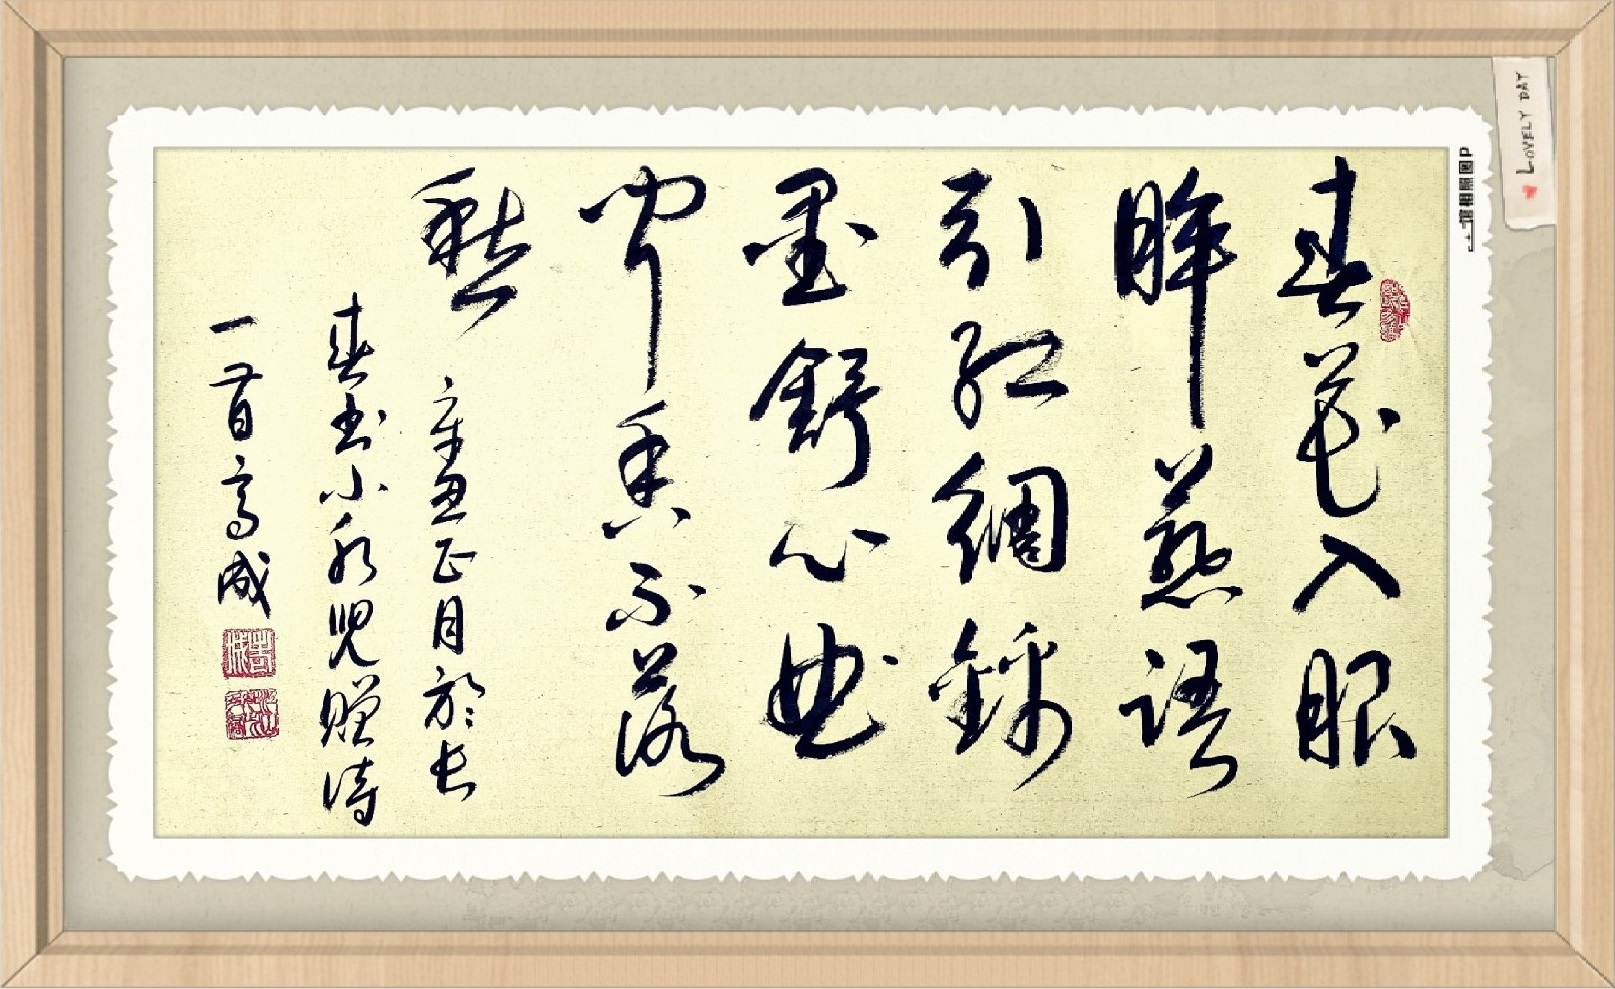 春花入眼
眸燕语
引红绸锦
墨舒心曲
闻香不落
愁
辛丑正月於长
春书小儿赠诗
一首高成
LOVELY DAY